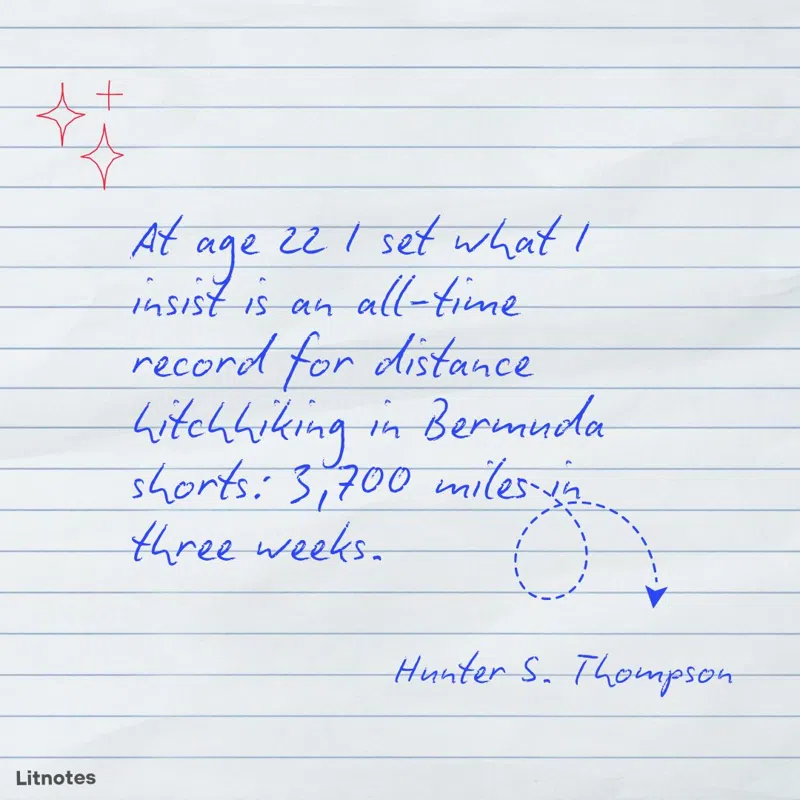 At age 22 I set what I
insist is an all-time
record for distance
hitchhiking in Bermuda
shorts: 3,700 miles in
three weeks.
Hunter S. Thompson
Litnotes